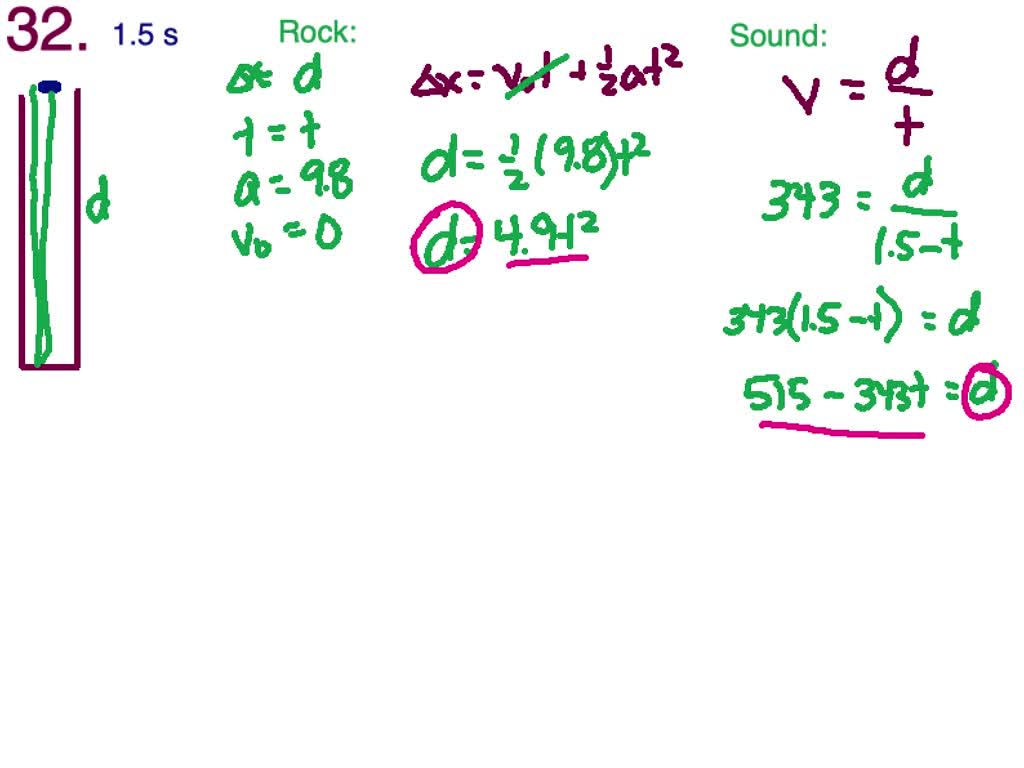 32. 1.5 s
d
Rock:
Δx = d
t = t
a = 9.8
v₀ = 0
Δx = v₀t + ½at²
d = ½(9.8)t²
d = 4.9t²
Sound:
v = d/t
343 = d/(1.5-t)
343(1.5-t) = d
515 - 343t = d